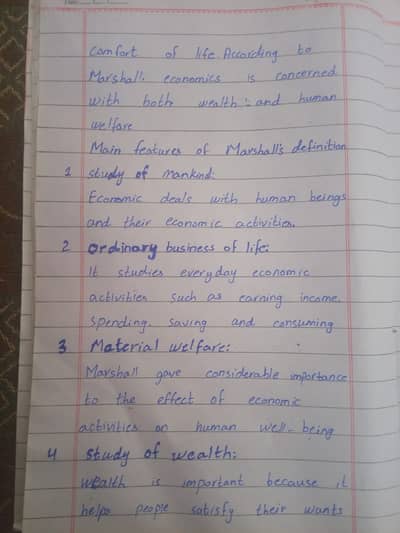 comfort of life. According to
Marshall. economics is concerned
with both wealth. and human
welfare
Main features of Marshall's definition
1 Study of mankind:
Economic deals with human beings
and their economic activities.
2 ordinary business of life:
It studies everyday economic
activities such as earning income.
spending. saving and consuming
3 Material welfare:
Marshall gave considerable importance
to the effect of economic
activities on human well-being
4 Study of wealth:
Wealth is important because it
helps people satisfy their wants